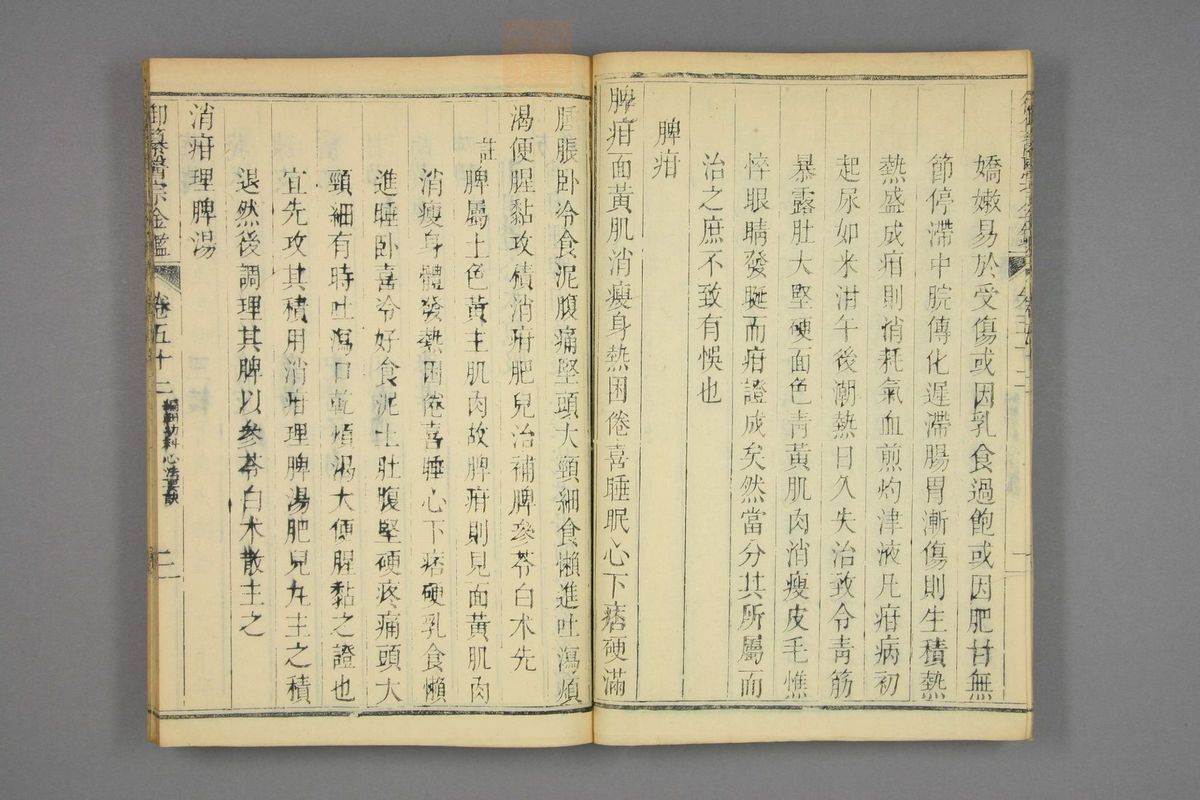 嬌嫩易於受傷或因乳食過飽或因肥甘無
節停滯中脘傳化遲滯腸胃漸傷則生積熱
熱盛成疳則消耗氣血煎灼津液凡疳病初
起尿如米泔午後潮熱日久失治致令青筋
暴露肚大堅硬面色青黃肌肉消瘦皮毛憔
悴眼睛發𥆧而疳證成矣然當分其所屬而
治之庶不致有悞也
脾疳
脾疳面黃肌消瘦身熱困倦喜睡眠心下痞硬滿
腫脹卧冷食泥腹痛堅頭大頸細食懶進吐瀉煩
渴便腥黏攻積消疳肥兒治補脾參苓白朮先
註脾屬土色黃主肌肉故脾疳則見面黃肌肉
消瘦身體發熱困倦喜睡心下痞硬乳食懶
進睡卧喜冷好食泥土肚腹堅硬疼痛頭大
頸細有時吐瀉口乾煩渴大便腥黏之證也
宜先攻其積用消疳理脾湯肥兒丸主之積
退然後調理其脾以參苓白朮散主之
消疳理脾湯
御纂醫宗金鑑
卷五十二
編輯幼科心法要訣
二